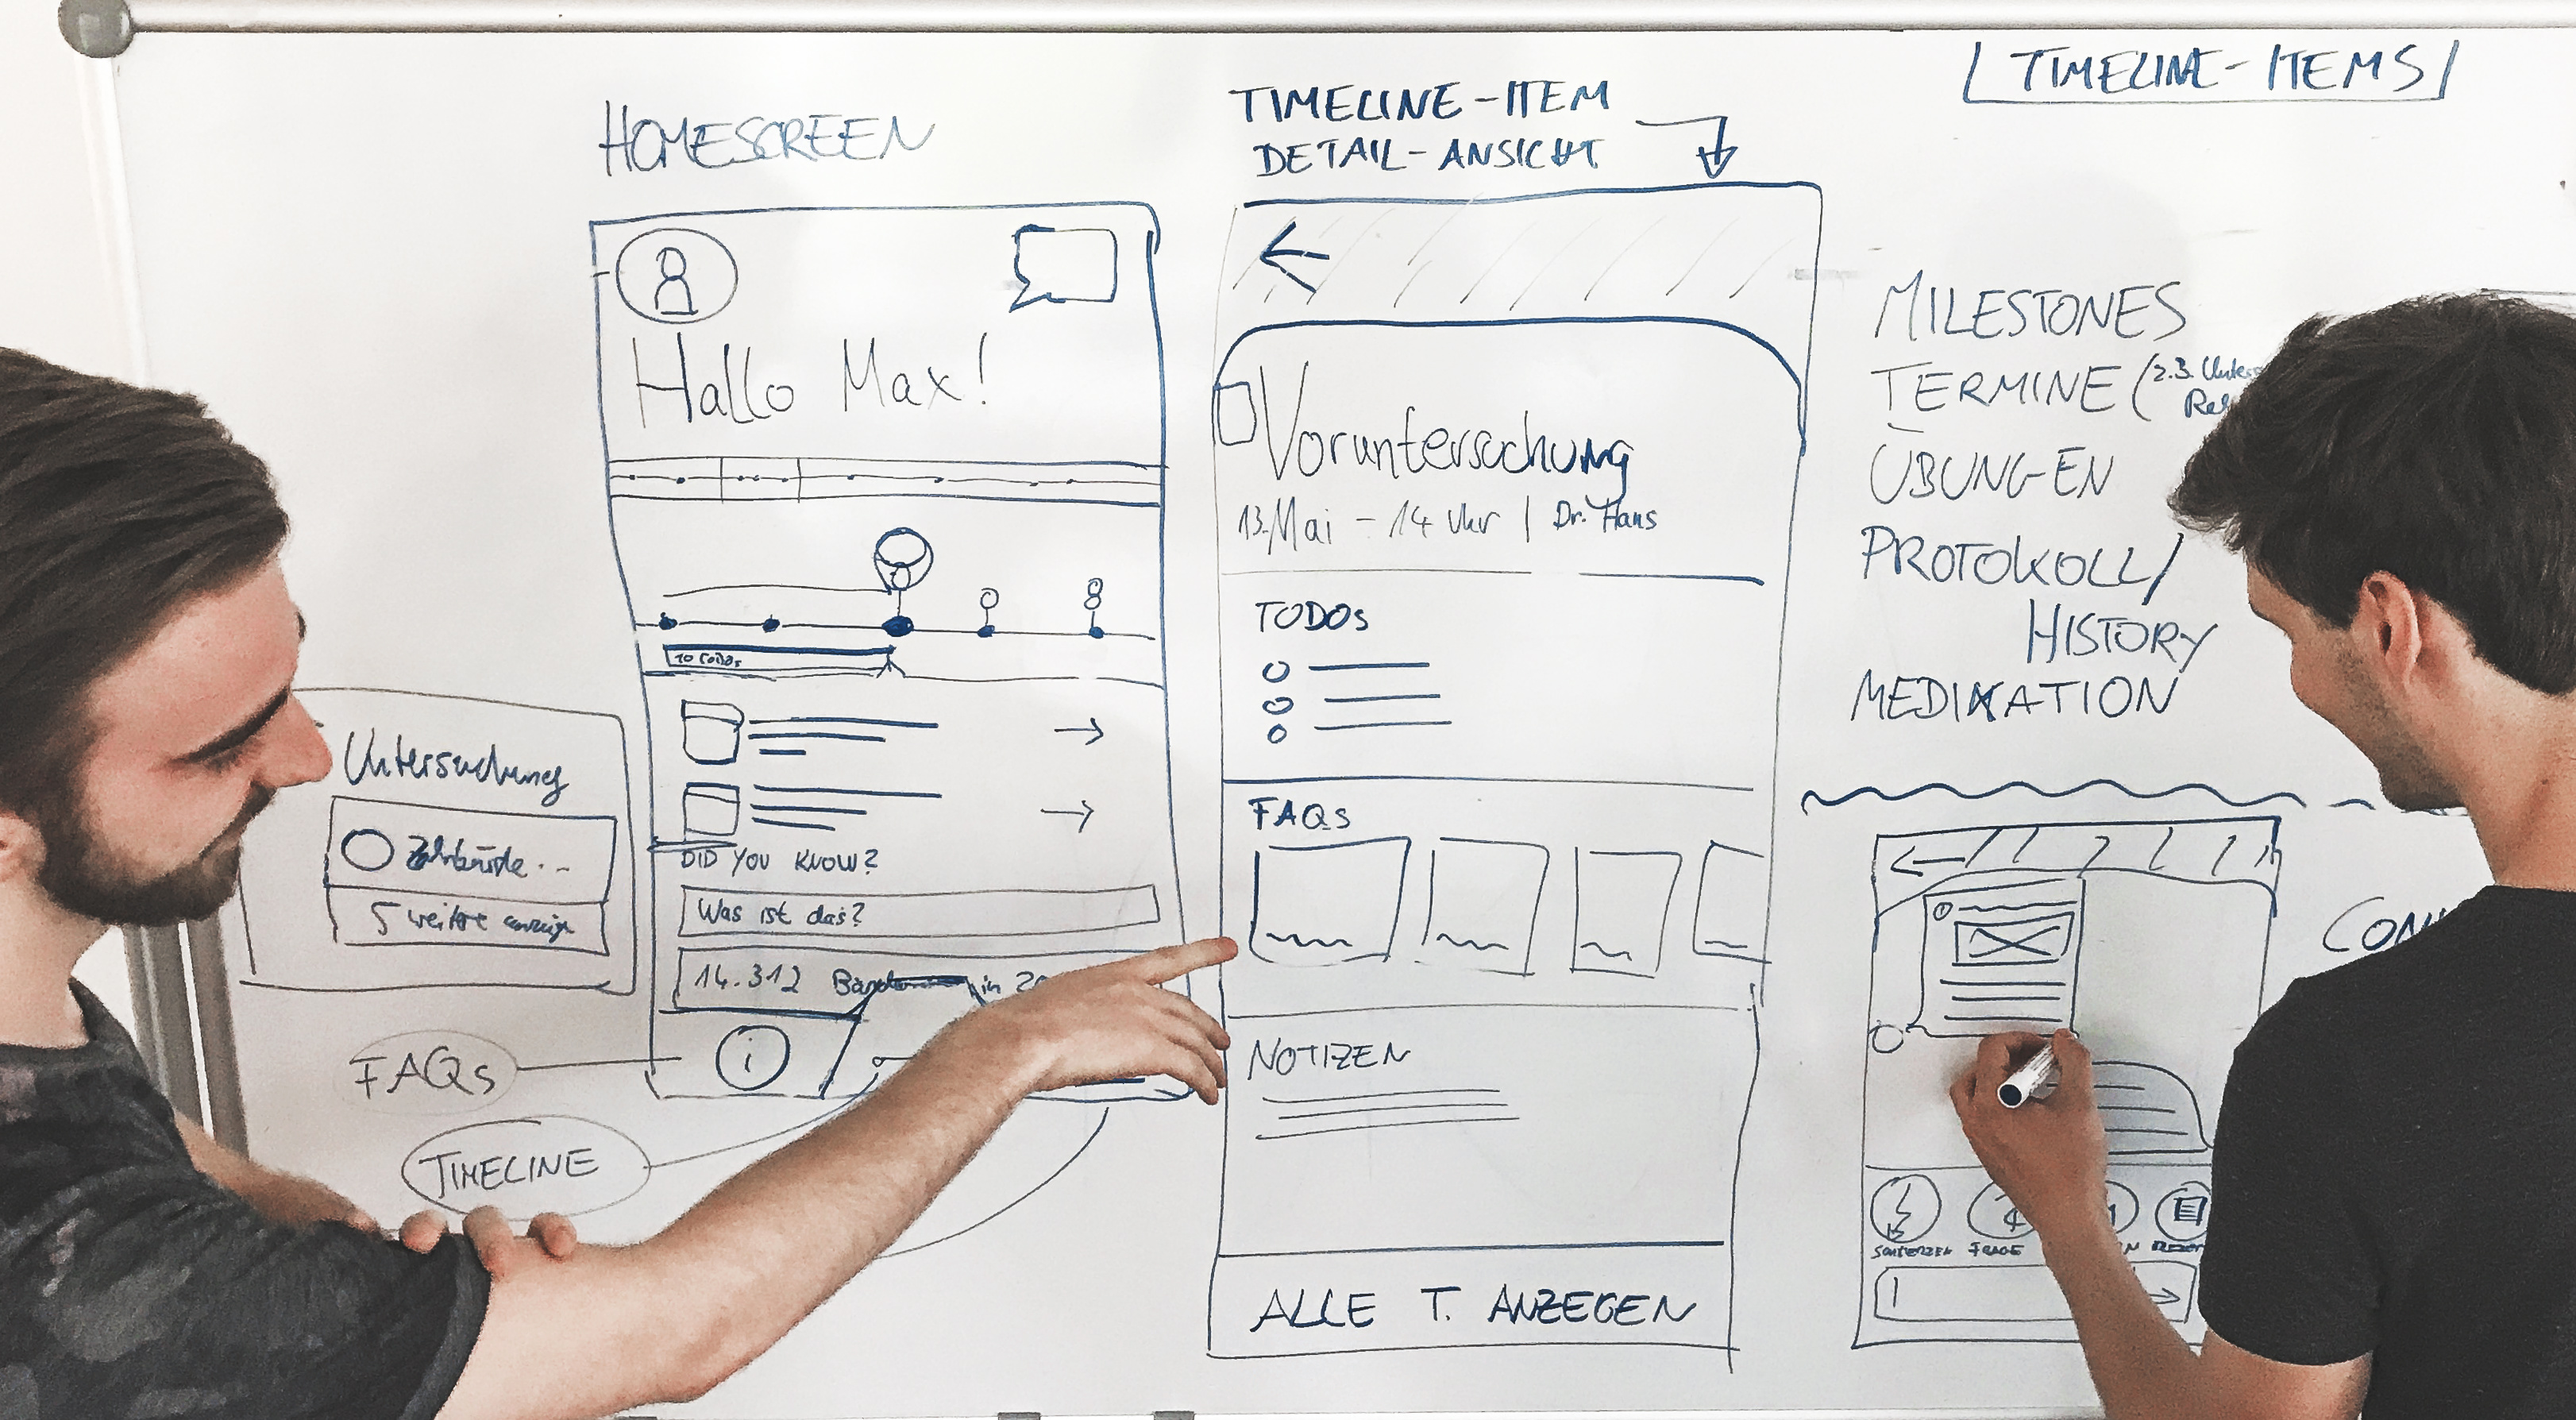 HOMESCREEN
Hallo Max!
10 Todos
DID YOU KNOW?
Was ist das?
14.312 in
i
Untersuchung
5 weitere
FAQs
TIMELINE
TIMELINE-ITEM
DETAIL-ANSICHT
Voruntersuchung
13. Mai - 14 Uhr | Dr. Hans
TODOS
FAQs
NOTIZEN
ALLE T. ANZEGEN
TIMELINE-ITEMS
MILESTONES
TERMINE (2.3.
ÜBUNGEN
PROTOKOLL/
HISTORY
MEDIKATION
SCHMERZEN FRAGE